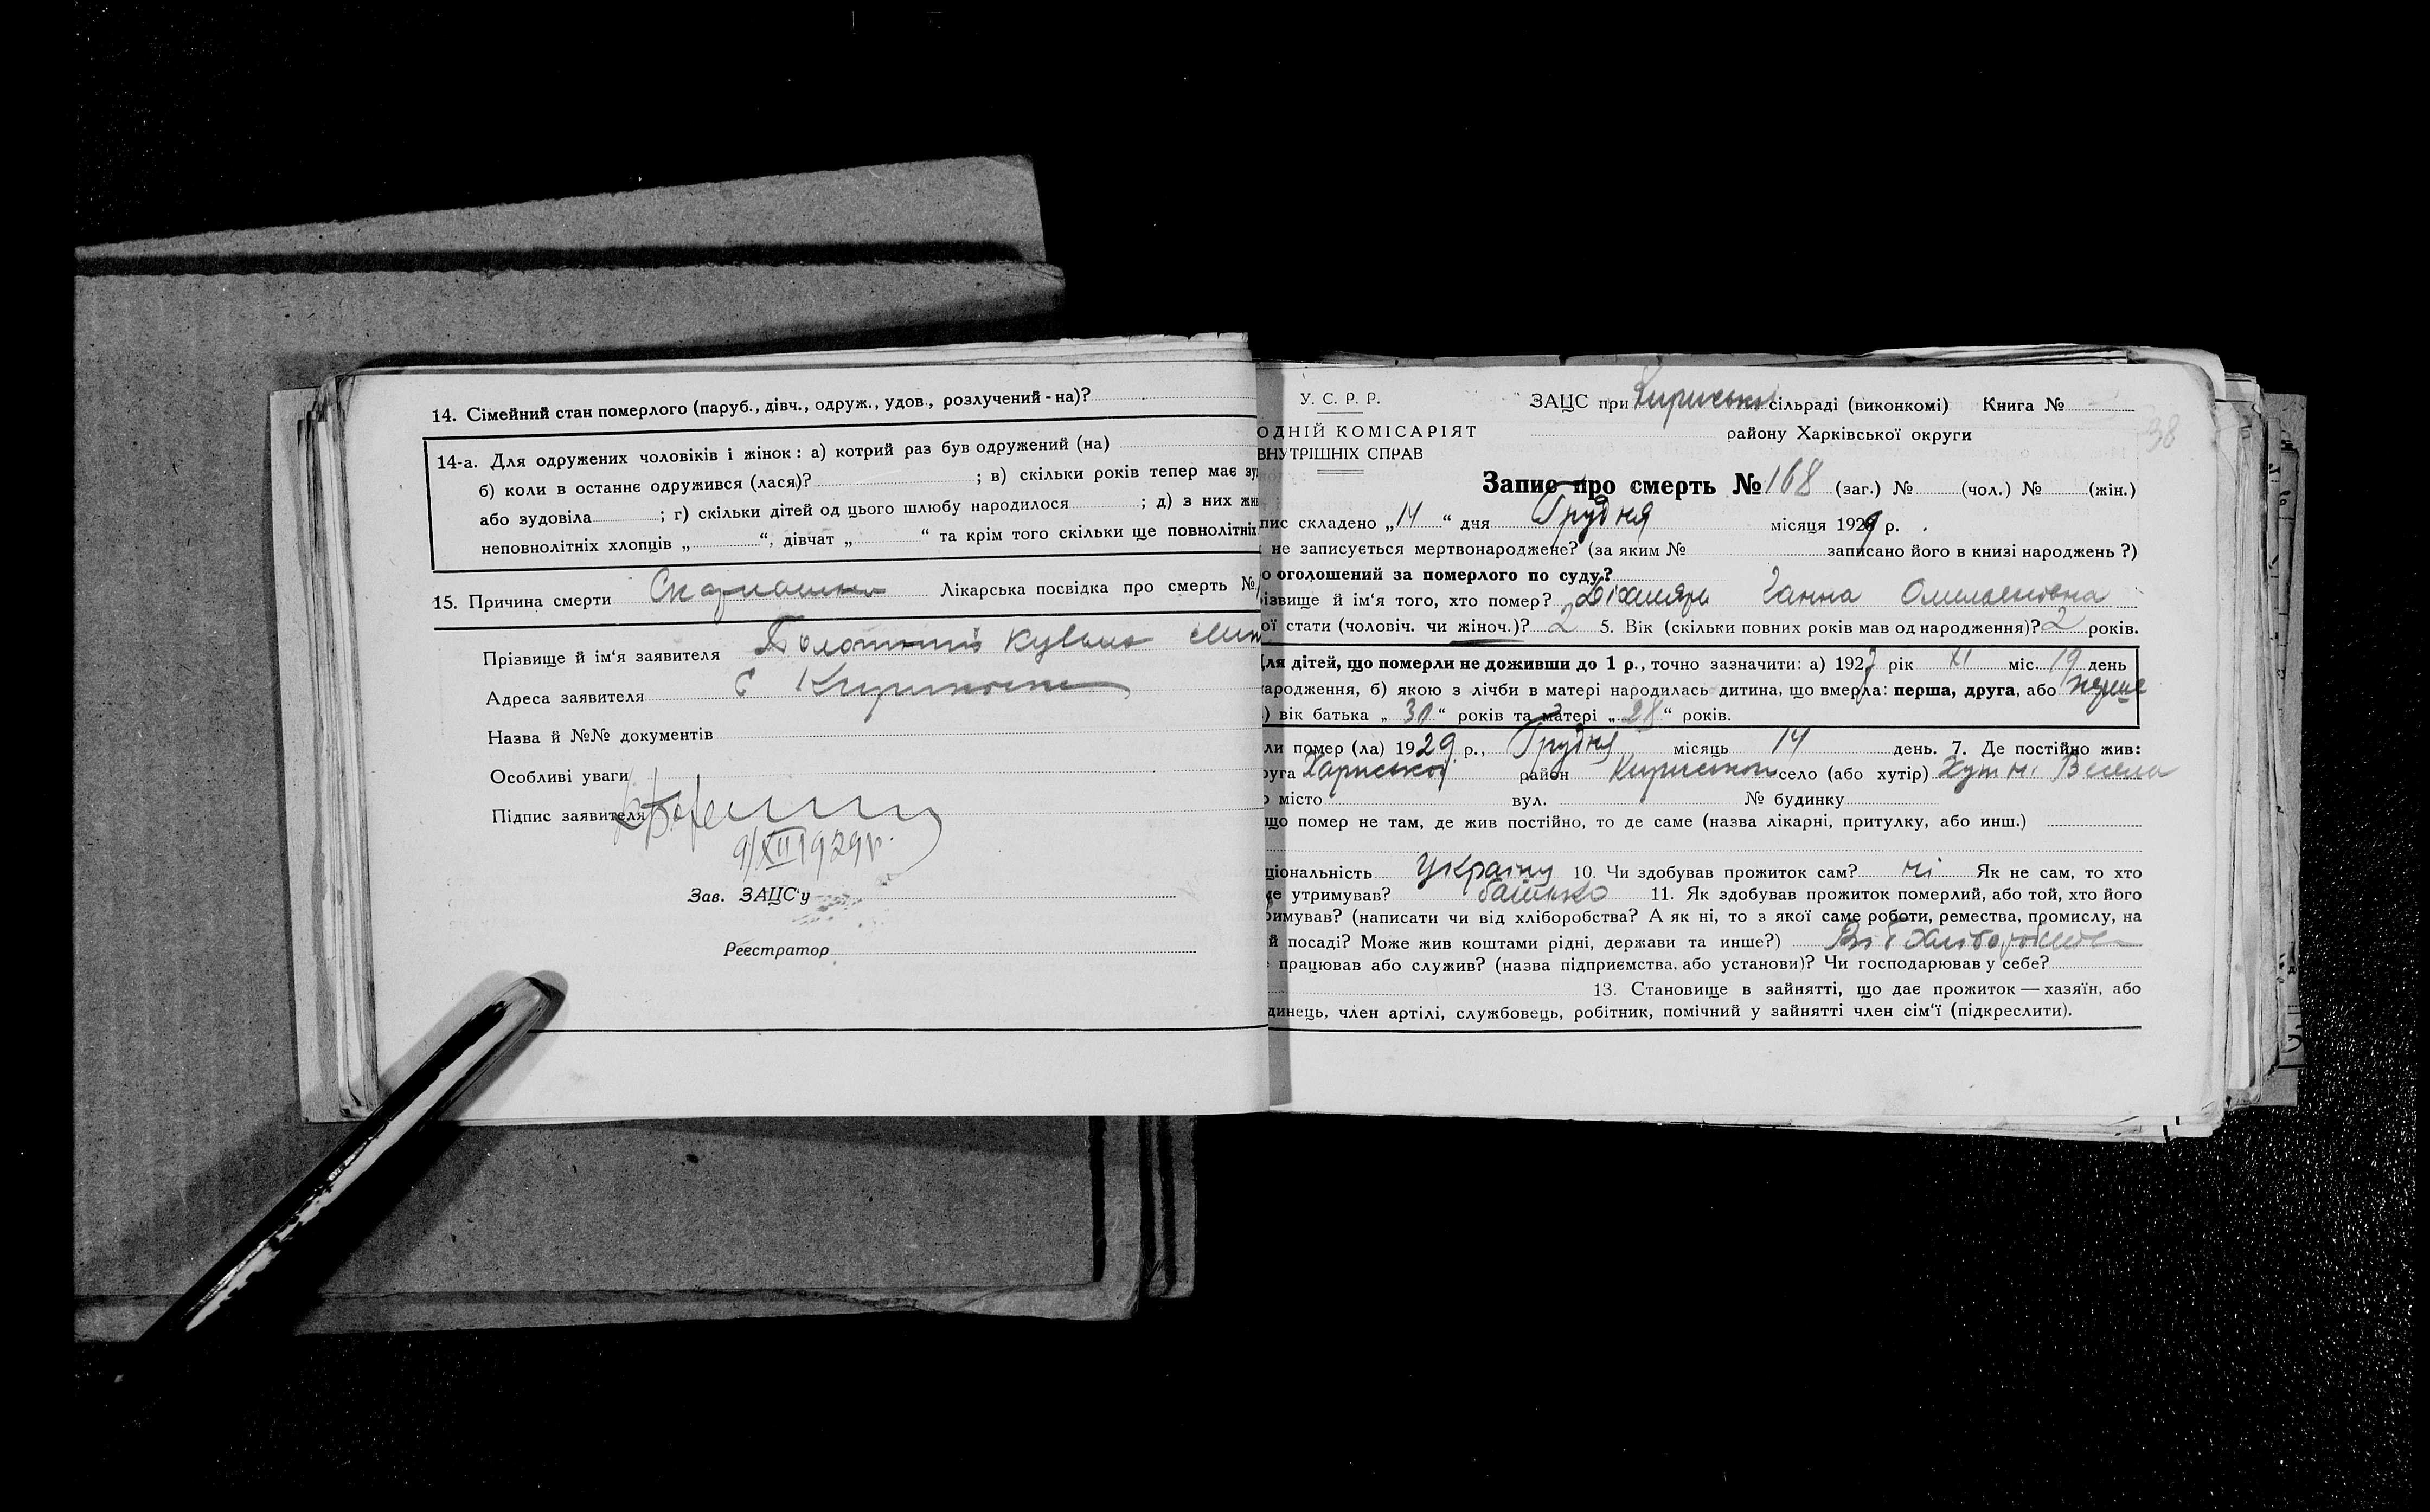 14. Сімейний стан померлого (паруб., дівч., одруж., удов., розлучений - на)?
14-а. Для одружених чоловіків і жінок: а) котрий раз був одружений (на)
б) коли в останнє одружився (лася)? ; в) скільки років тепер має
або зудовіла ; г) скільки дітей од цього шлюбу народилося ; д) з них
неповнолітніх хлопців „ “, дівчат „ “ та крім того скільки ще повнолітніх
15. Причина смерти Лікарська посвідка про смерть №
Прізвище й ім‘я заявителя
Адреса заявителя с
Назва й №№ документів
Особливі уваги
Підпис заявителя
9/XII 1929 р.
Зав. ЗАЦС‘у
Реєстратор
У. С. Р. Р.
ОДНІЙ КОМІСАРІЯТ
ВНУТРІШНІХ СПРАВ
ЗАЦС при сільраді (виконкомі) Книга №
району Харківської округи
38
Запис про смерть № 168 (заг.) № (чол.) № (жін.)
пис складено „14“ дня Грудня місяця 1929 р.
не записується мертвонароджене? (за яким № записано його в книзі народжень?)
о оголошений за померлого по суду?
ізвище й ім‘я того, хто помер? Ганна Омеляновна
ої стати (чоловіч. чи жіноч.)? 2 5. Вік (скільки повних років мав од народження)? 2 років.
для дітей, що померли не доживши до 1 р., точно зазначити: а) 1927 рік XI міс. 19 день
ародження, б) якою з лічби в матері народилась дитина, що вмерла: перша, друга, або
) вік батька „30“ років та матері „28“ років.
ли помер (ла) 1929 р., Грудня місяць 14 день. 7. Де постійно жив:
руга район село (або хутір) Весела
о місто вул. № будинку
що помер не там, де жив постійно, то де саме (назва лікарні, притулку, або инш.)
ціональність україну 10. Чи здобував прожиток сам? ні Як не сам, то хто
ме утримував? батько 11. Як здобував прожиток померлий, або той, хто його
римував? (написати чи від хліборобства? А як ні, то з якої саме роботи, ремества, промислу, на
й посаді? Може жив коштами рідні, держави та инше?) Від Хліборобства
працював або служив? (назва підприємства, або установи)? Чи господарював у себе?
13. Становище в зайнятті, що дає прожиток — хазяїн, або
динець, член артілі, службовець, робітник, помічний у зайнятті член сім‘ї (підкреслити).